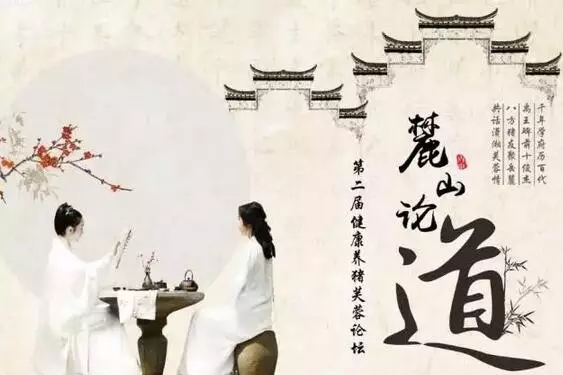 千年学府历百代
禹王碑前十俊杰
八方猪友聚岳麓
共话潇湘芙蓉情
麓山论道
第二届健康养猪芙蓉论坛